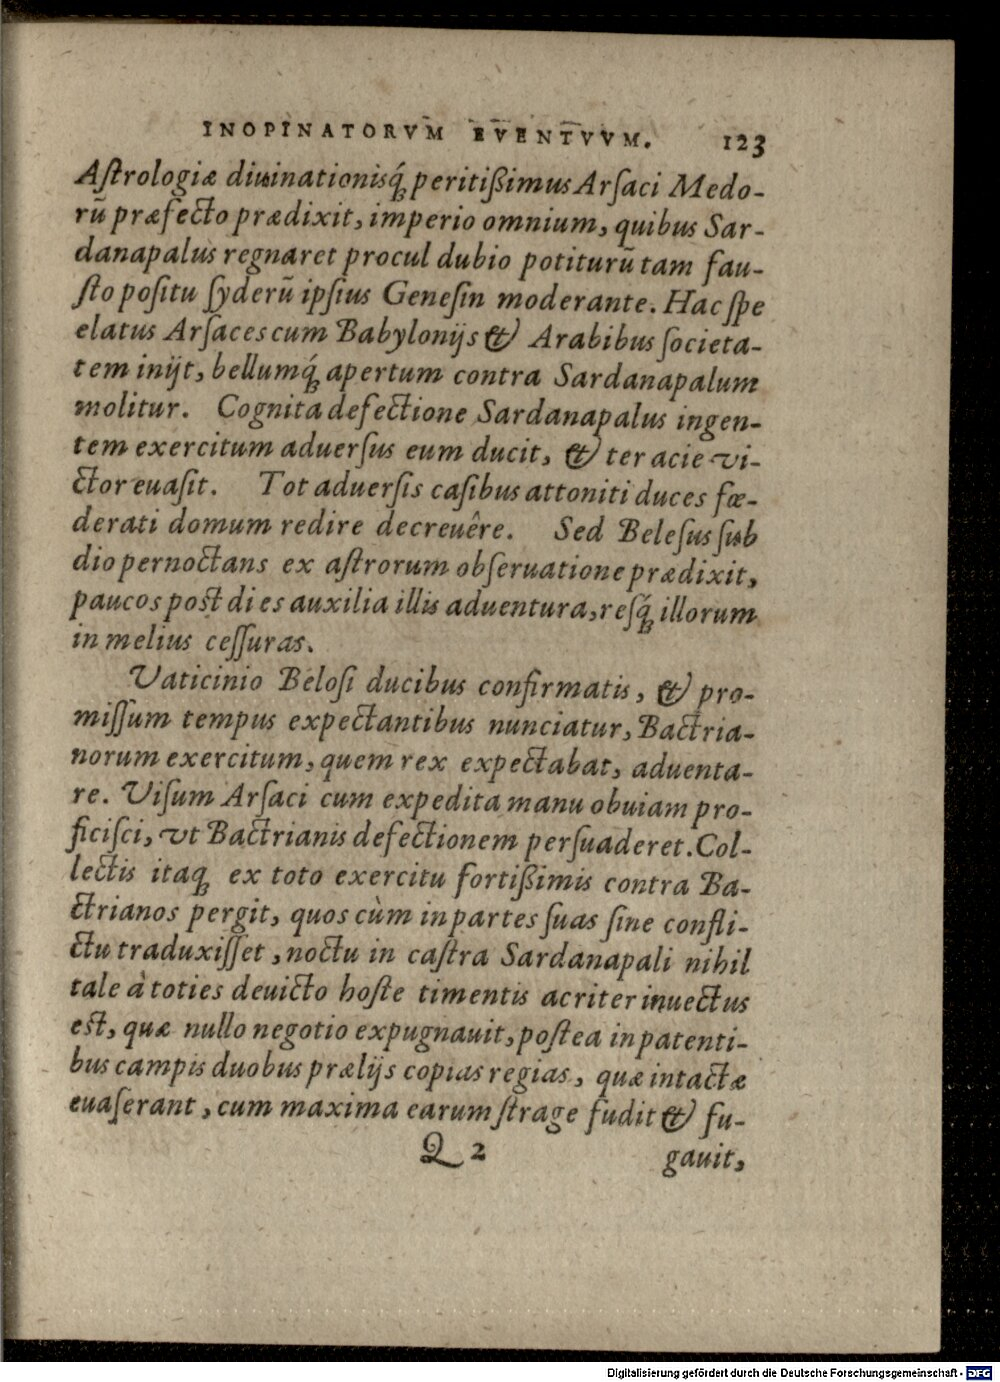 INOPINATORVM EVENTVVM. 123
Aſtrologiæ diuinationisq́ꝫ peritißimus Arſaci Medo-
rū præfecto prædixit, imperio omnium, quibus Sar-
danapalus regnaret procul dubio potiturū tam fau-
ſto poſitu ſyderū ipſius Geneſin moderante. Hac ſpe
elatus Arſaces cum Babylonijs & Arabibus ſocieta-
tem inijt, bellumq́ꝫ apertum contra Sardanapalum
molitur. Cognita defectione Sardanapalus ingen-
tem exercitum aduerſus eum ducit, & ter acie vi-
ctor euaſit. Tot aduerſis caſibus attoniti duces fœ-
derati domum redire decreuêre. Sed Beleſus ſub
dio pernoctans ex aſtrorum obſeruatione prædixit,
paucos poſt dies auxilia illis aduentura, reſq́ꝫ illorum
in melius ceſſuras.
Vaticinio Beloſi ducibus confirmatis, & pro-
miſſum tempus expectantibus nunciatur, Bactria-
norum exercitum, quem rex expectabat, aduenta-
re. Viſum Arſaci cum expedita manu obuiam pro-
ficiſci, vt Bactrianis defectionem perſuaderet. Col-
lectis itaqꝫ ex toto exercitu fortißimis contra Ba-
ctrianos pergit, quos cùm in partes ſuas ſine confli-
ctu traduxiſſet, noctu in caſtra Sardanapali nihil
tale à toties deuicto hoſte timentis acriter inuectus
eſt, quæ nullo negotio expugnauit, poſtea in patenti-
bus campis duobus prælijs copias regias, quæ intactæ
euaſerant, cum maxima earum ſtrage fudit & fu-
Q 2 gauit,
Digitalisierung gefördert durch die Deutsche Forschungsgemeinschaft - DFG